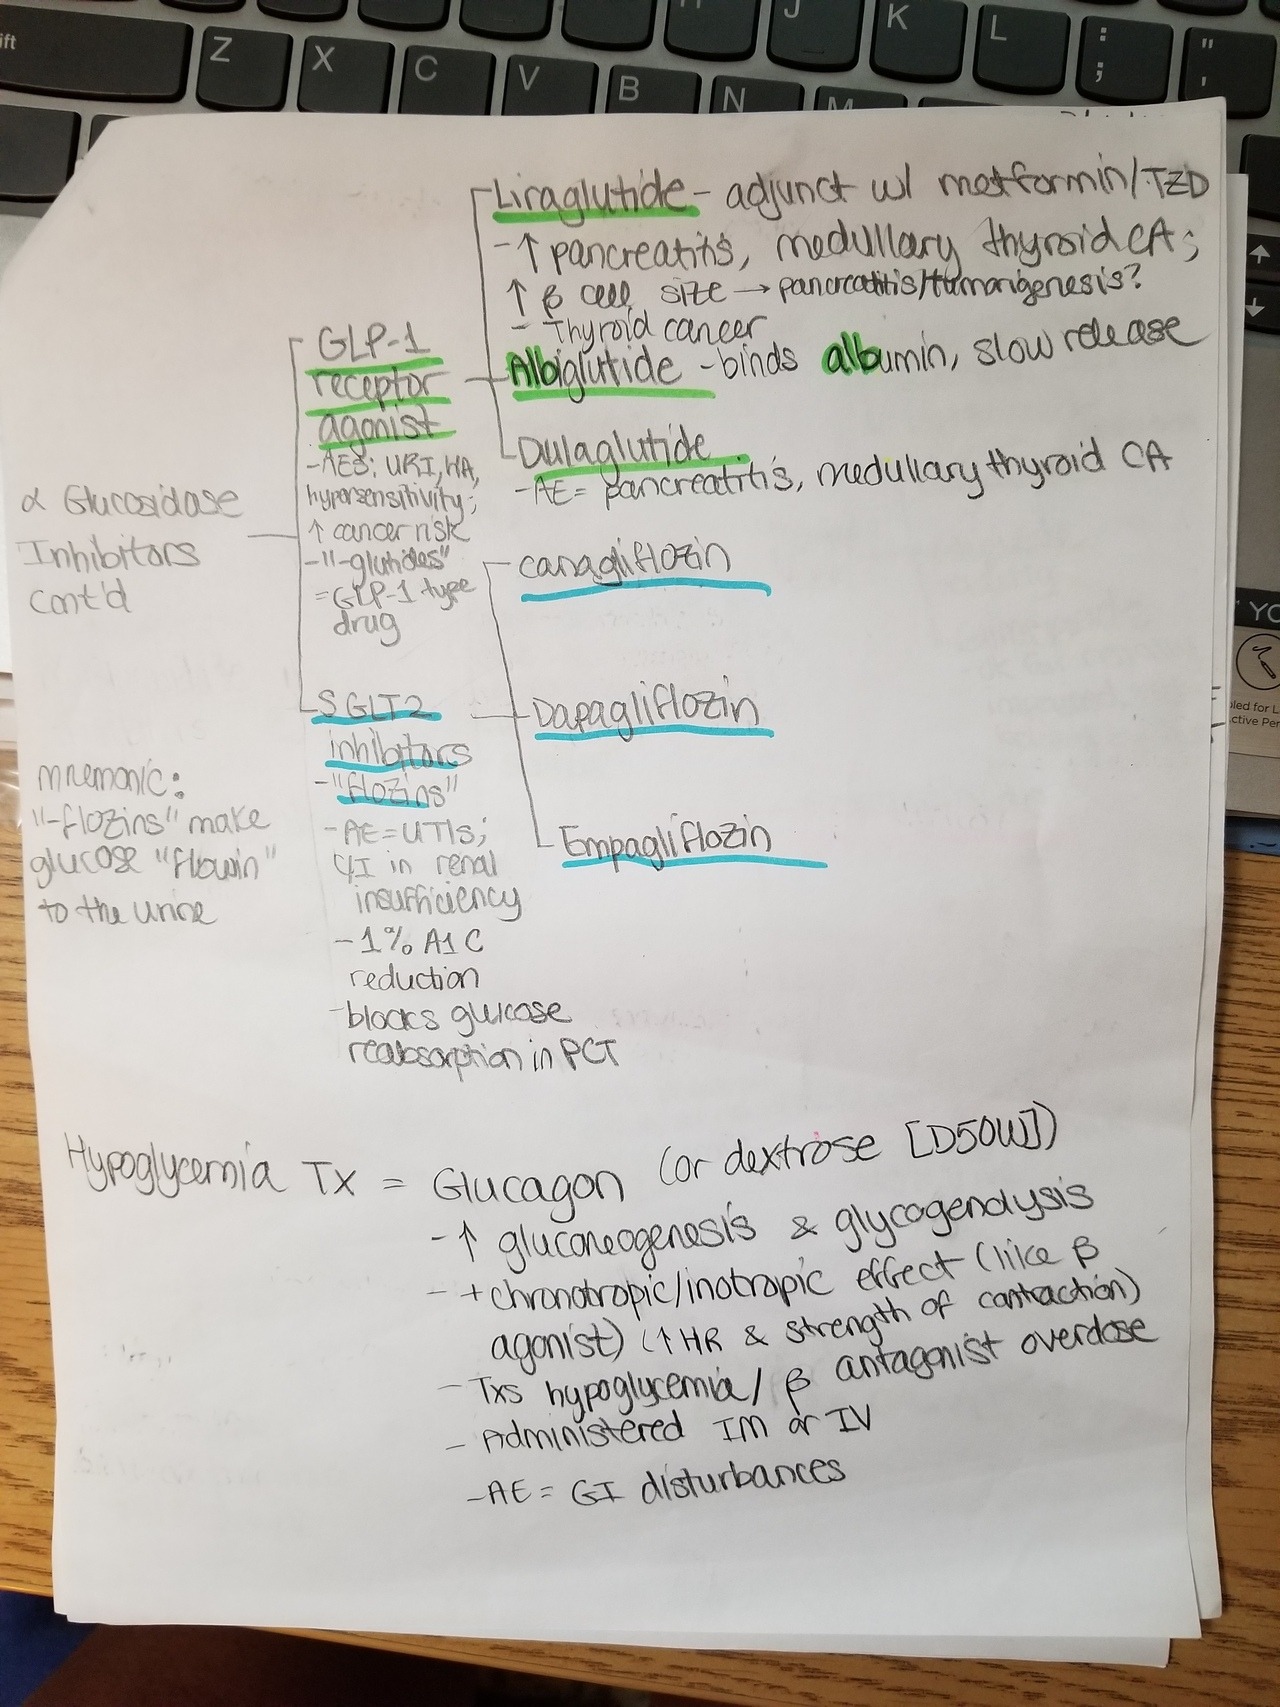 ift
Z
X
C
V
B
N
M
J
K
L
:
;
"
'
Liraglutide - adjunct w/ metformin/TZD
-↑ pancreatitis, medullary thyroid CA;
↑ β cell size → pancreatitis/tumorigenesis?
- Thyroid cancer
Albiglutide - binds albumin, slow release
Dulaglutide
-AE= pancreatitis, medullary thyroid CA
GLP-1
receptor
agonist
-AES: URI, HA,
hypersensitivity;
↑ cancer risk
-"-glutides"
=GLP-1 type
drug
α Glucosidase
Inhibitors
cont'd
canagliflozin
Dapagliflozin
Empagliflozin
SGLT2
inhibitors
-"flozins"
-AE=UTIs;
C/I in renal
insufficiency
-1% A1C
reduction
-blocks glucose
reabsorption in PCT
mnemonic:
"-flozins" make
glucose "flowin"
to the urine
Hypoglycemia Tx = Glucagon (or dextrose [D50W])
-↑ gluconeogenesis & glycogenolysis
- +chronotropic/inotropic effect (like β
agonist) (↑HR & strength of contraction)
-Txs hypoglycemia/ β antagonist overdose
- Administered IM or IV
-AE = GI disturbances
YO
led for L
ctive Per